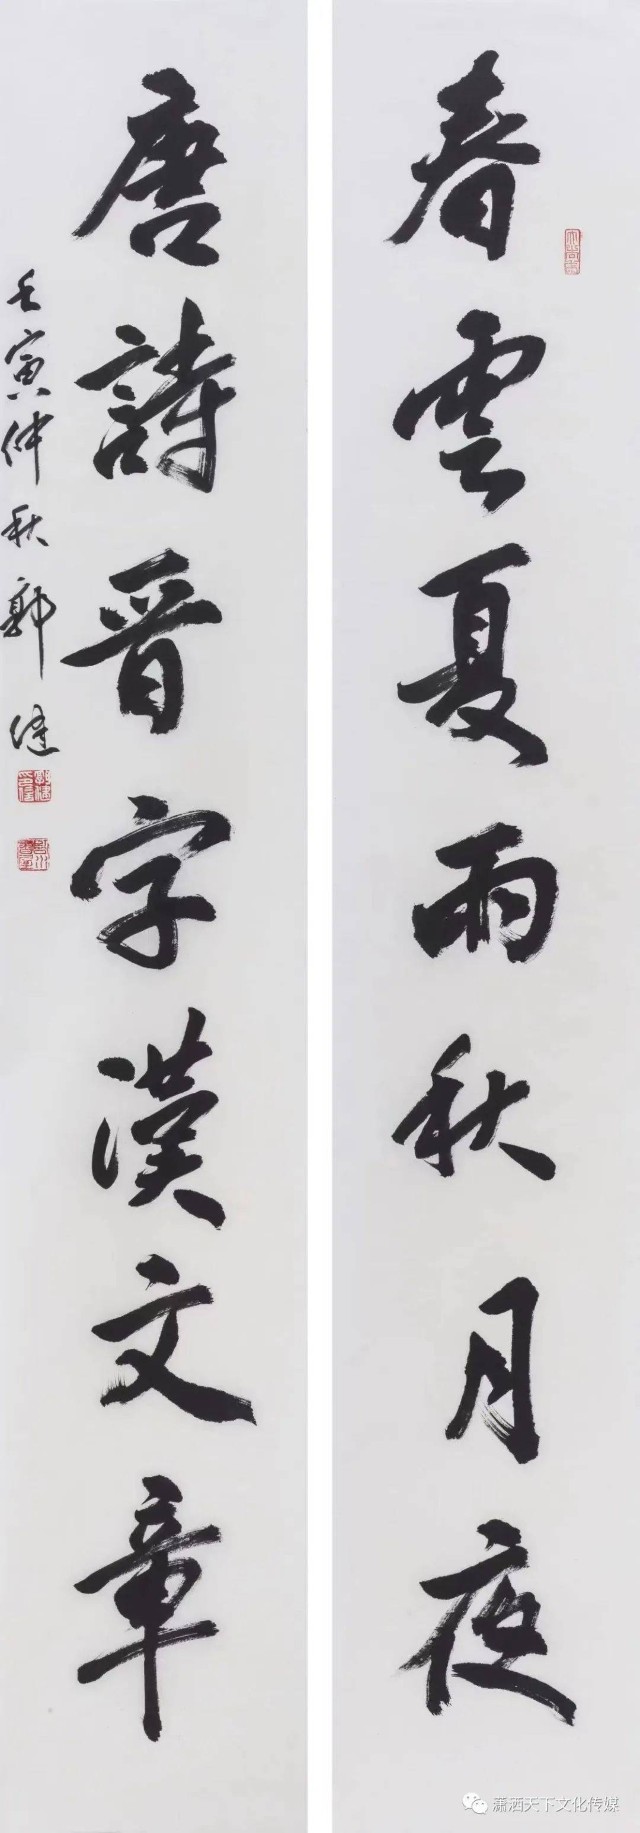 春雲夏雨秋月夜
唐詩晋字漢文章
壬寅仲秋郭健
潇洒天下文化传媒